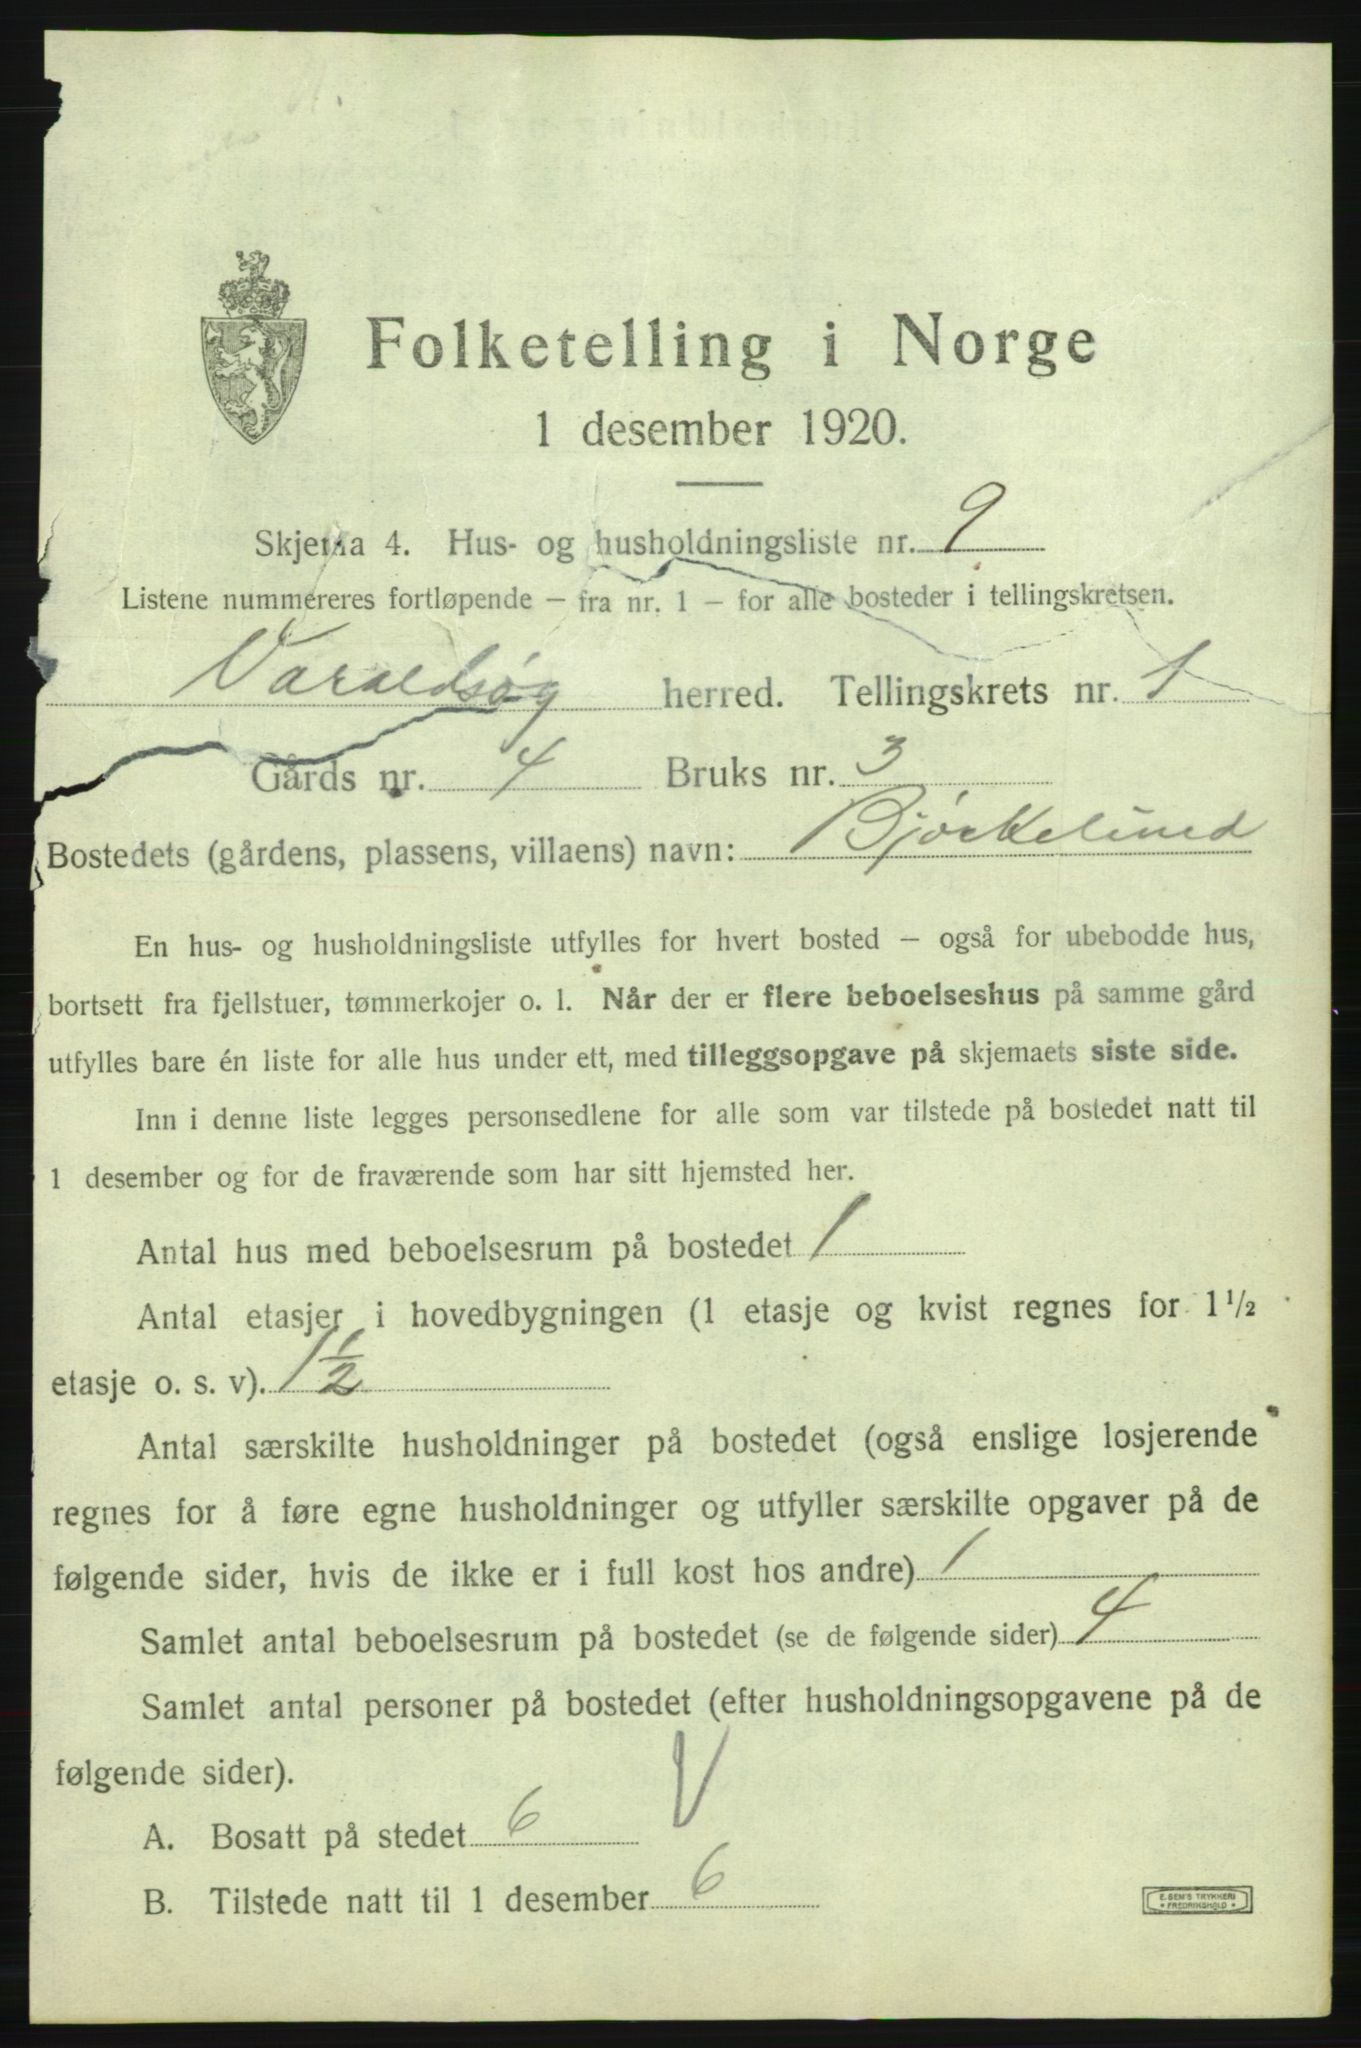 Folketelling i Norge
1 desember 1920.
Skjema 4. Hus- og husholdningsliste nr. 9
Listene nummereres fortløpende – fra nr. 1 – for alle bosteder i tellingskretsen.
Varaldsøy herred. Tellingskrets nr. 1
Gårds nr. 4 Bruks nr. 3
Bostedets (gårdens, plassens, villaens) navn: Bjørkelund
En hus- og husholdningsliste utfylles for hvert bosted – også for ubebodde hus,
bortsett fra fjellstuer, tømmerkojer o. l. Når der er flere beboelseshus på samme gård
utfylles bare én liste for alle hus under ett, med tilleggsopgave på skjemaets siste side.
Inn i denne liste legges personsedlene for alle som var tilstede på bostedet natt til
1 desember og for de fraværende som har sitt hjemsted her.
Antal hus med beboelsesrum på bostedet 1
Antal etasjer i hovedbygningen (1 etasje og kvist regnes for 1½
etasje o. s. v). 1½
Antal særskilte husholdninger på bostedet (også enslige losjerende
regnes for å føre egne husholdninger og utfyller særskilte opgaver på de
følgende sider, hvis de ikke er i full kost hos andre) 1
Samlet antal beboelsesrum på bostedet (se de følgende sider) 4
Samlet antal personer på bostedet (efter husholdningsopgavene på de
følgende sider).
A. Bosatt på stedet 6
B. Tilstede natt til 1 desember 6
E. SEM'S TRYKKERI
* FREDRIKSHALD *